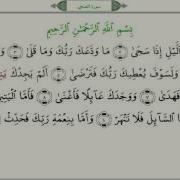 سورة الضحى
بِسْمِ ٱللَّهِ ٱلرَّحْمَٰنِ ٱلرَّحِيمِ
ٱلَّيْلِ إِذَا سَجَىٰ ٢ مَا وَدَّعَكَ رَبُّكَ وَمَا قَلَىٰ ٣
وَلَسَوْفَ يُعْطِيكَ رَبُّكَ فَتَرْضَىٰ ٥ أَلَمْ يَجِدْكَ
فَهَدَىٰ ٧ وَوَجَدَكَ عَآئِلًا فَأَغْنَىٰ ٨ فَأَمَّا ٱلْيَتِيمَ
ٱلسَّآئِلَ فَلَا تَنْهَرْ ١٠ وَأَمَّا بِنِعْمَةِ رَبِّكَ فَحَدِّثْ ١١